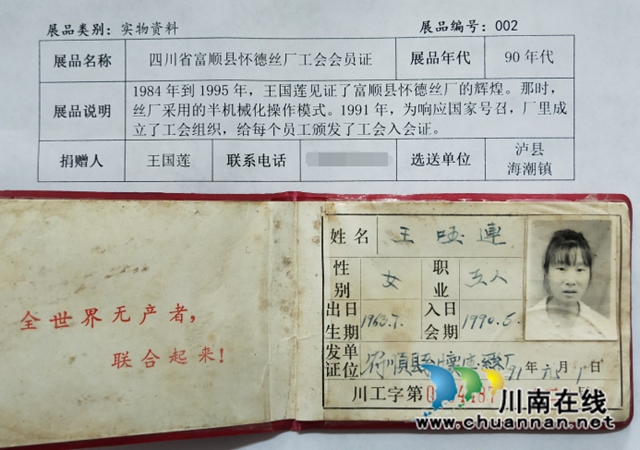 展品类别：实物资料 展品编号：002
展品名称 四川省富顺县怀德丝厂工会会员证 展品年代 90年代
展品说明 1984年到1995年，王国莲见证了富顺县怀德丝厂的辉煌。那时，
丝厂采用的半机械化操作模式。1991年，为响应国家号召，厂里
成立了工会组织，给每个员工颁发了工会入会证。
捐赠人 王国莲 联系电话 选送单位 泸县
海潮镇
全世界无产者，
联合起来！
姓名 王 連
性别 女 职业 工人
出生日期 1963.7. 入会日期 1990.6.
发证单位 順縣懷 絲厂 91年六月1日
川工字第
川南在线
www.chuannan.net